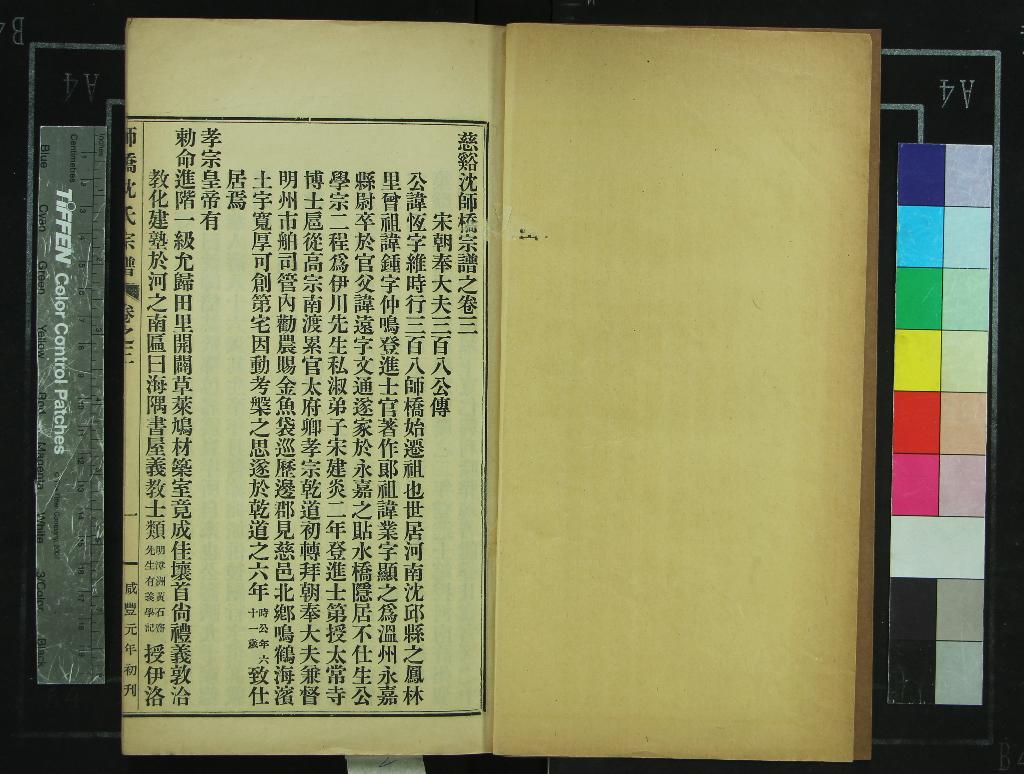 慈谿沈師橋宗譜之卷三
宋朝奉大夫三百八公傳
公諱恆字維時行三百八師橋始遷祖也世居河南沈邱縣之鳳林
里曾祖諱鍾字仲鳴登進士官著作郎祖諱業字顯之為溫州永嘉
縣尉卒於官父諱遠字文通遂家於永嘉之貼水橋隱居不仕生公
學宗二程為伊川先生私淑弟子宋建炎二年登進士第授太常寺
博士扈從高宗南渡累官太府卿孝宗乾道初轉拜朝奉大夫兼督
明州市舶司管內勸農賜金魚袋巡歷邊郡見慈邑北鄉鳴鶴海濱
土字寬厚可創第宅因動考槃之思遂於乾道之六年時公年六十一歲致仕
居焉
孝宗皇帝有
勅命進階一級允歸田里開闢草萊鳩材築室竟成佳壤首尚禮義敦洽
教化建塾於河之南區曰海隅書屋義教士類明漳洲黃石齋先生有義學記授伊洛
師橋沈氏宗譜 卷之三 一 咸豐元年初刊
TIFFEN Color Control Patches
Centimetres
Inches
Blue
Cyan
Green
Yellow
Red
Magenta
White
3/Color
Black
A4
A4